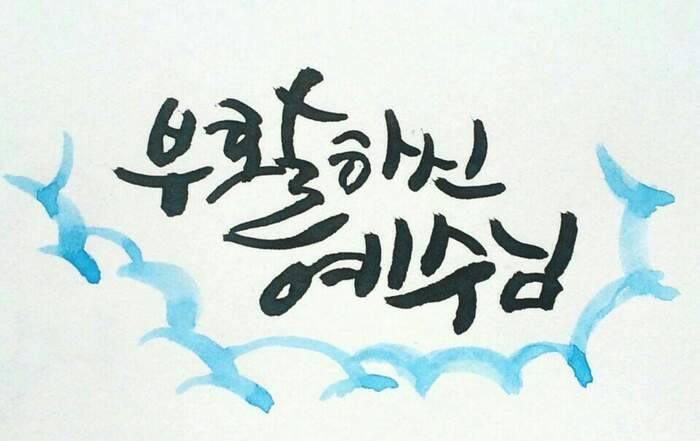 부활하신
예수님